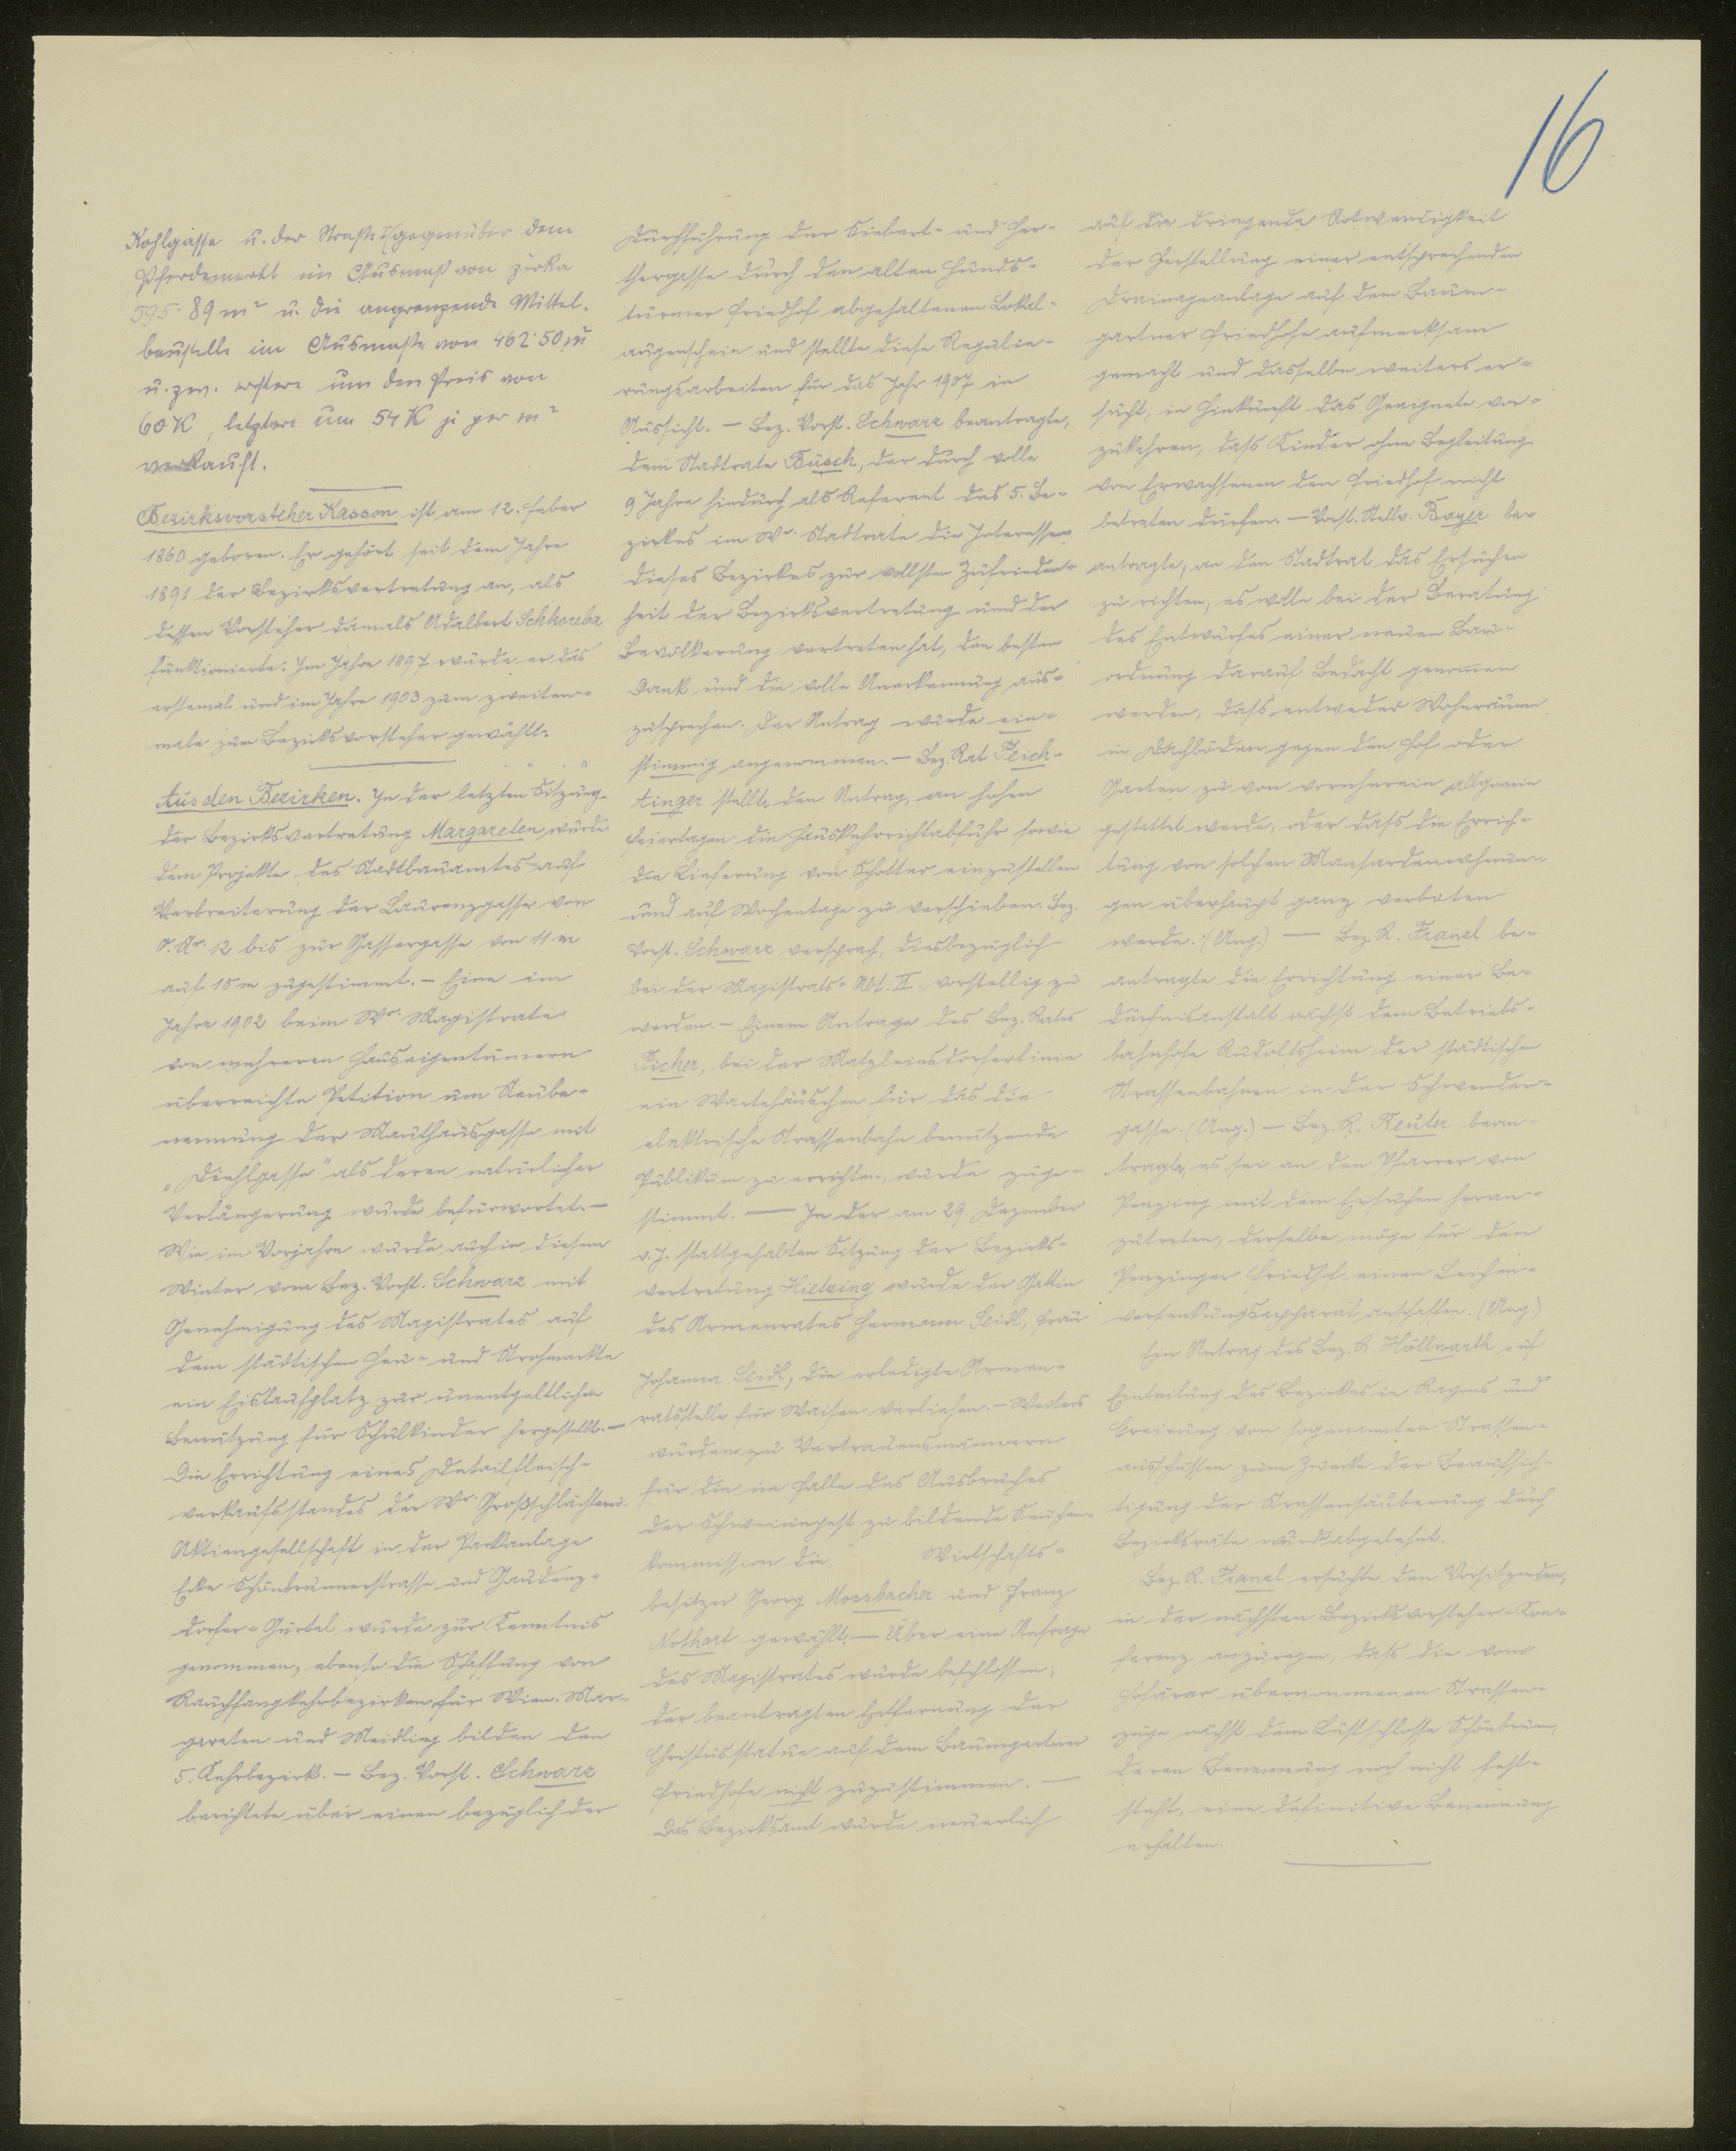 16
Kohlgasse u. der Straße I/gegenüber dem
Pferdemarkt im Ausmaß von zirka
595·89 m² u. die angrenzende Mittel-
baustelle im Ausmaße von 462·50 m²
u. zw. erstere um den Preis von
60 K, letztere um 54 K je per m²
verkauft.
Bezirksvorsteher Kasson ist am 12. Feber
1860 geboren. Er gehört seit dem Jahre
1891 der Bezirksvertretung an, als
dessen Vorsteher damals Adalbert
funktionierte. Im Jahre 1897 wurde er das
erstemal und im Jahre 1903 zum zweiten-
male zum Bezirksvorsteher gewählt.
Aus den Bezirken. In der letzten Sitzung
der Bezirksvertretung Margareten wurde
dem Projekte des Stadtbauamtes auf
Verbreiterung der Laurenzgasse von
O. Nr. 12 bis zur Gassergasse von 11 m
auf 15 m zugestimmt. – Eine im
Jahre 1902 beim Wr. Magistrate
von mehreren Hauseigentümern
überreichte Petition um Neube-
nennung der Mauthausgasse mit
„Diehlgasse" als deren natürlicher
Verlängerung wurde befürwortet. –
Wie im Vorjahre wurde auch in diesem
Winter vom Bez. Vorst. Schwarz mit
Genehmigung des Magistrates auf
dem städtischen Heu- und Strohmarkte
ein Eislaufplatz zur unentgeltlichen
Benützung für Schulkinder hergestellt. –
Die Errichtung eines Detailfleisch-
verkaufsstandes der Wr. Großschlächterei
Aktiengesellschaft in der Parkanlage
Ecke Schönbrunnerstrasse und Gaudenz-
dorfer-Gürtel wurde zur Kenntnis
genommen, ebenso die Schaffung von
Rauchfangkehrbezirken für Wien. Mar-
gareten und Meidling bilden den
5. Kehrbezirk. – Bez. Vorst. Schwarz
berichtete über einen bezüglich der
Durchführung der Siebert- und Her-
thergasse durch den alten Hunds-
turmer Friedhof abgehaltenen Lokal-
augenschein und stellte diese Regulie-
rungsarbeiten für das Jahr 1907 in
Aussicht. – Bez. Vorst. Schwarz beantragte,
dem Stadtrate Büsch, der durch volle
9 Jahre hindurch als Referent des 5. Be-
zirkes im Wr. Stadtrate die Interessen
dieses Bezirkes zur vollsten Zufrieden-
heit der Bezirksvertretung und der
Bevölkerung vertreten hat, den besten
Dank und die volle Anerkennung aus-
zusprechen. Der Antrag wurde ein-
stimmig angenommen. – Bez. Rat Feich-
tinger stellte den Antrag, an hohen
Feiertagen die Hauskehrrichtabfuhr sowie
die Lieferung von Schotter einzustellen
und auf Wochentage zu verschieben. Bez.
Vorst. Schwarz versprach, diesbezüglich
bei der Magistrats-Abt. II. vorstellig zu
werden. – Einem Antrage des Bez. Rates
Ficher, bei der Matzleinsdorferlinie
ein Wartehäuschen für das die
elektrische Strassenbahn benützende
Publikum zu errichten, wurde zuge-
stimmt. — In der am 29. Dezember
v. J. stattgehabten Sitzung der Bezirks-
vertretung Hietzing wurde der Gattin
des Armenrates Hermann Seidl, Frau
Johanna Seidl, die erledigte Armen-
ratsstelle für Waisen verliehen. – Weiters
wurden zu Vertrauensmännern
für die im Falle des Ausbruches
der Schweinepest zu bildende Seuchen-
kommission die Wirtschafts-
besitzer Georg Mossbacher und Franz
Nothart gewählt. – Über eine Anfrage
des Magistrates wurde beschlossen,
der beantragten Entfernung der
Christusstatue auf dem Baumgartner
Friedhofe nicht zuzustimmen. –
Das Bezirksamt wurde neuerlich
auf die dringende Notwendigkeit
der Herstellung einer entsprechenden
Drainageanlage auf dem Baum-
gartner Friedhofe aufmerksam
gemacht und dasselbe weiters er-
sucht, in Hinkunft das Geeignete vor-
zukehren, dass Kinder ohne Begleitung
von Erwachsenen den Friedhof nicht
betreten dürfen. – Vorst. Stellv. Bayer be-
antragte, an den Stadtrat das Ersuchen
zu richten, es wolle bei der Beratung
des Entwurfes einer neuen Bau-
ordnung darauf Bedacht genommen
werden, dass entweder Wohnräume
in Dachböden gegen den Hof oder
Garten zu von vornherein allgemein
gestattet werde, oder dass die Errich-
tung von solchen Mansardenwohnun-
gen überhaupt ganz verboten
werde. (Ang.) — Bez. R. Franzl be-
antragte die Errichtung einer Be-
dürfnisanstalt nächst dem Betriebs-
bahnhofe Rudolfsheim der städtischen
Strassenbahnen in der Schwender-
gasse. (Ang.) – Bez. R. Reuter bean-
tragte, es sei an den Pfarrer von
Penzing mit dem Ersuchen heran-
zutreten, derselbe möge für den
Penzinger Friedhof einen Leichen-
versenkungsapparat anschaffen. (Ang.)
Ein Antrag des Bez. R. Höllwarth auf
Einteilung des Bezirkes in Rayons und
Creirung von sogenannten Strassen-
ausschüssen zum Zwecke der Beaufsich-
tigung der Strassensäuberung durch
Bezirksräte wurde abgelehnt.
Bez. R. Franzl ersuchte den Vorsitzenden,
in der nächsten Bezirksvorsteher-Kon-
ferenz anzuregen, dass die vom
Hofärar übernommenen Strassen-
züge nächst dem Lustschlosse Schönbrunn,
deren Benennung noch nicht fest-
steht, eine definitive Benennung
erhalten.